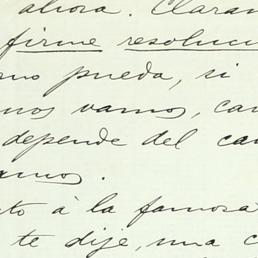 ahora. Claram
firme resoluci
mo pueda, si
nos vamos, cam
depende del cam
amos.
to á la famosa
te dije, una c